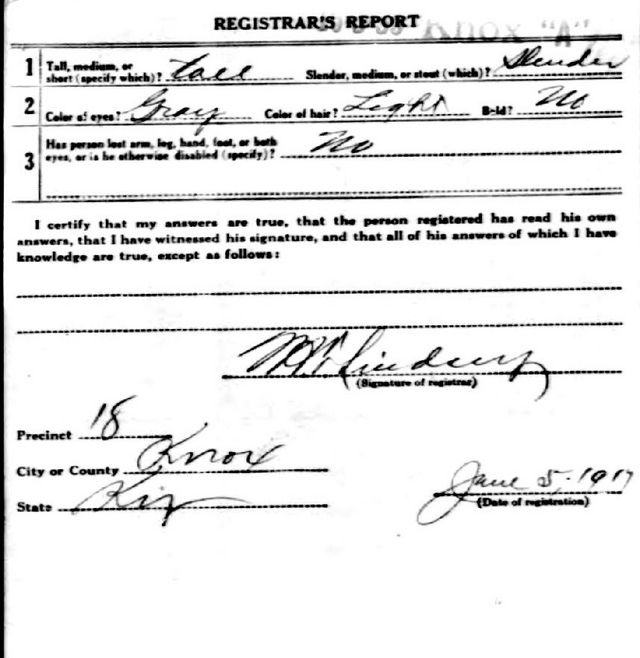 REGISTRAR'S REPORT
Knox "A"
1 Tall, medium, or short (specify which)? tall Slender, medium, or stout (which)? Slender
2 Color of eyes? Gray Color of hair? Light Bald? No
3 Has person lost arm, leg, hand, foot, or both eyes, or is he otherwise disabled (specify)? No
I certify that my answers are true, that the person registered has read his own
answers, that I have witnessed his signature, and that all of his answers of which I have
knowledge are true, except as follows:
Lindsey
(Signature of registrar)
Precinct 18
City or County Knox
State Ky
June 5, 1917
(Date of registration)